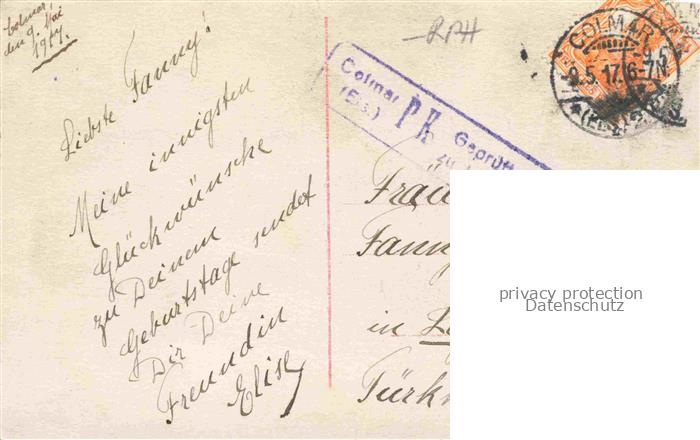 Colmar,
den 9. Mai
1917.
Liebste Fanny!
Meine innigsten
Glückwünsche
zu Deinem
Geburtstage sendet
Dir Deine
Freundin
Elise
Colmar
(Els.)
PK
Geprüft
zu
COLMAR
9.5.17. 6-7N.
Fräu
Fanny
in
Türk
privacy protection
Datenschutz